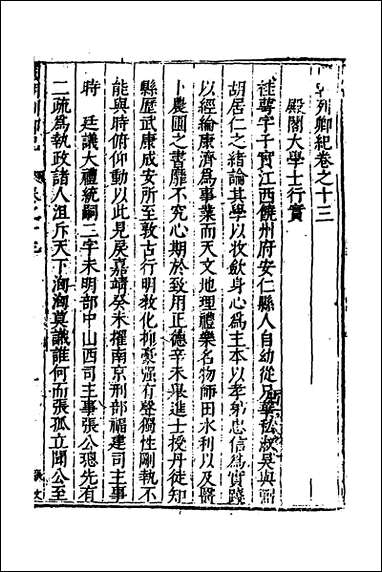 列卿紀卷之十三
殿閣大學士行實
桂萼字子實江西饒州府安仁縣人自幼從兄華私淑吳與弼
胡居仁之緒論其學以收斂身心爲主本以孝弟忠信爲實踐
以經綸康濟爲事業而天文地理禮樂名物師田水利以及醫
卜農圃之書靡不究心期於致用正德辛未舉進士授丹徒知
縣歷武康成安所至敦古行明教化抑豪强有聲獨性剛執不
能與時俯仰動以此見戾嘉靖癸未擢南京刑部福建司主事
時 廷議大禮統嗣二字未明部中山西司主事張公璁先有
二疏爲執政諸人沮斥天下洶洶莫識誰何而張孤立聞公至